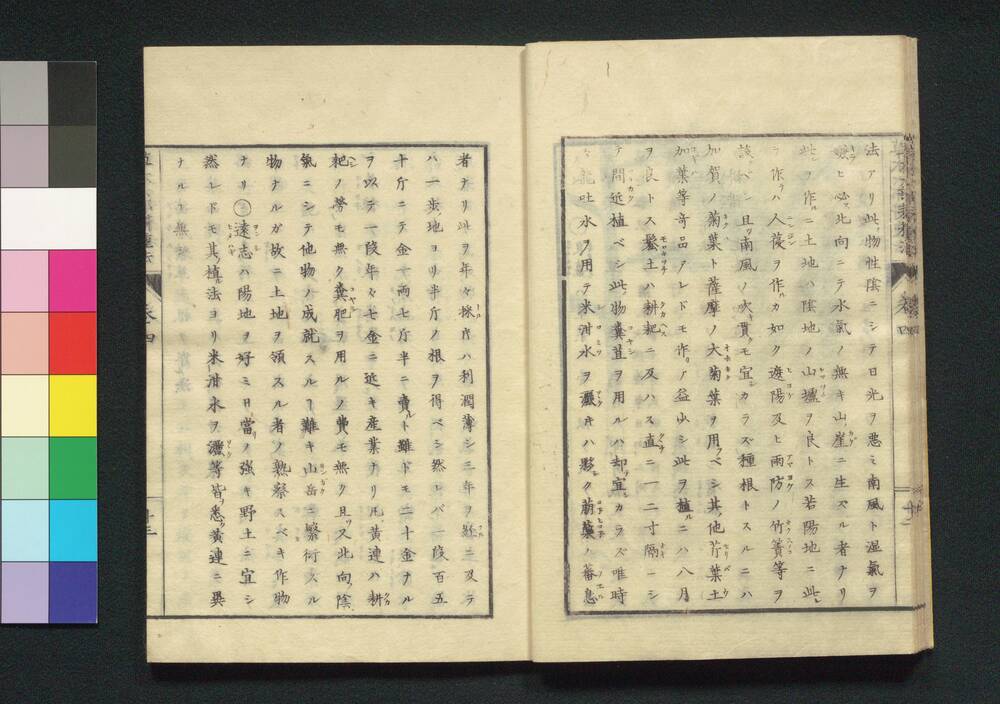 法アリ此物性陰ニシテ日光ヲ悪ミ南風ト湿氣ヲ
嫌ヒ必北向ニテ水氣ノ無キ山崖ニ生ズル者ナリ
此ヲ作ルニ土地ハ陰地ノ山壚ヲ良トス若陽地ニ此
ヲ作ラハ人葠ヲ作ルカ如ク遮陽及ヒ雨防ノ竹簀等ヲ
設ベシ且南風ノ吹貫モ宜シカラズ種根トスルニハ
加賀ノ菊葉ト薩摩ノ大菊葉ヲ用フベシ其他芹葉土
加葉等奇品アレドモ作リテ益少シ此ヲ植ルニハ八月
ヲ良トス鬆土ハ耕耙ニ及ハス直ニ一二寸隔一シ
テ間近植ベシ此物糞苴ヲ用ルハ却宜シカラズ唯時
々龍吐水ヲ用テ米泔水ヲ灑キハ夥ク萠蘖ノ蕃息
者ナリ此ヲ年々採片ハ利潤薄シ三年ヲ経ニ及テ
ハ一歩地ヨリ半斤ノ根ヲ得ベシ然レバ一段百五
十斤ニテ金一両七斤半ニ賣ルト雖ドモ二十金ナル
ヲ以テ一段年々七金ニ近キ産業ナリ凡黄連ハ耕
耙ノ勞モ無ク糞肥ヲ用ルノ費モ無ク且又此向陰
氣ニシテ他物ノ成就スルヿ難キ山岳ニ繁衍スル
物ナルガ故ニ土地ヲ領スル者ノ熟察スベキ作物
ナリ 遠志ハ陽地ヲ好ミ日當リノ強キ野土ニ宜シ
然レドモ其植ル法ヨリ米泔水ヲ灑等皆悉ク黄連ニ異
ナルヿ無
巻四
十三